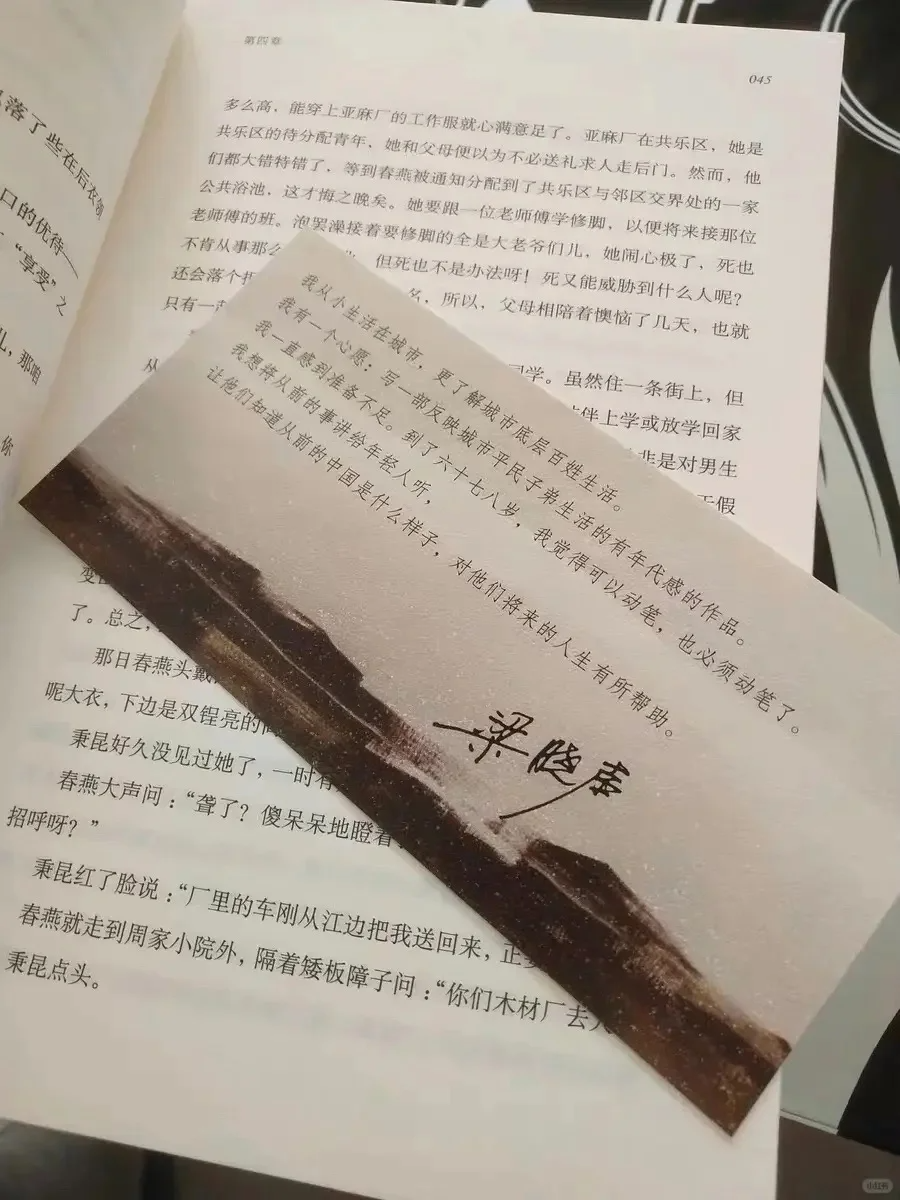 第四章
045
多么高，能穿上亚麻厂的工作服就心满意足了。亚麻厂在共乐区，她是
共乐区的待分配青年，她和父母便以为不必送礼求人走后门。然而，他
们都大错特错了，等到春燕被通知分配到了共乐区与邻区交界处的一家
公共浴池，这才悔之晚矣。她要跟一位老师傅学修脚，以便将来接那位
老师傅的班。泡罢澡接着要修脚的全是大老爷们儿，她闹心极了，死也
不肯从事那么
但死也不是办法呀！死又能威胁到什么人呢？
还会落个
名，所以，父母相陪着懊恼了几天，也就
只有一
同学。虽然住一条街上，但
从
伴上学或放学回家
非是对男生
假
了。总之，
那日春燕头戴
呢大衣，下边是双锃亮的
秉昆好久没见过她了，一时有
春燕大声问：“聋了？傻呆呆地瞪着
招呼呀？”
秉昆红了脸说：“厂里的车刚从江边把我送回来，正
春燕就走到周家小院外，隔着矮板障子问：“你们木材厂去
秉昆点头。
落了些在后衣领
口的优待——
“享受”之
儿，那咱
你
我从小生活在城市，更了解城市底层百姓生活。
我有一个心愿：写一部反映城市平民子弟生活的有年代感的作品。
我一直感到准备不足。到了六十七八岁，我觉得可以动笔，也必须动笔了。
我想将从前的事讲给年轻人听，
让他们知道从前的中国是什么样子，对他们将来的人生有所帮助。
梁晓声
小红书